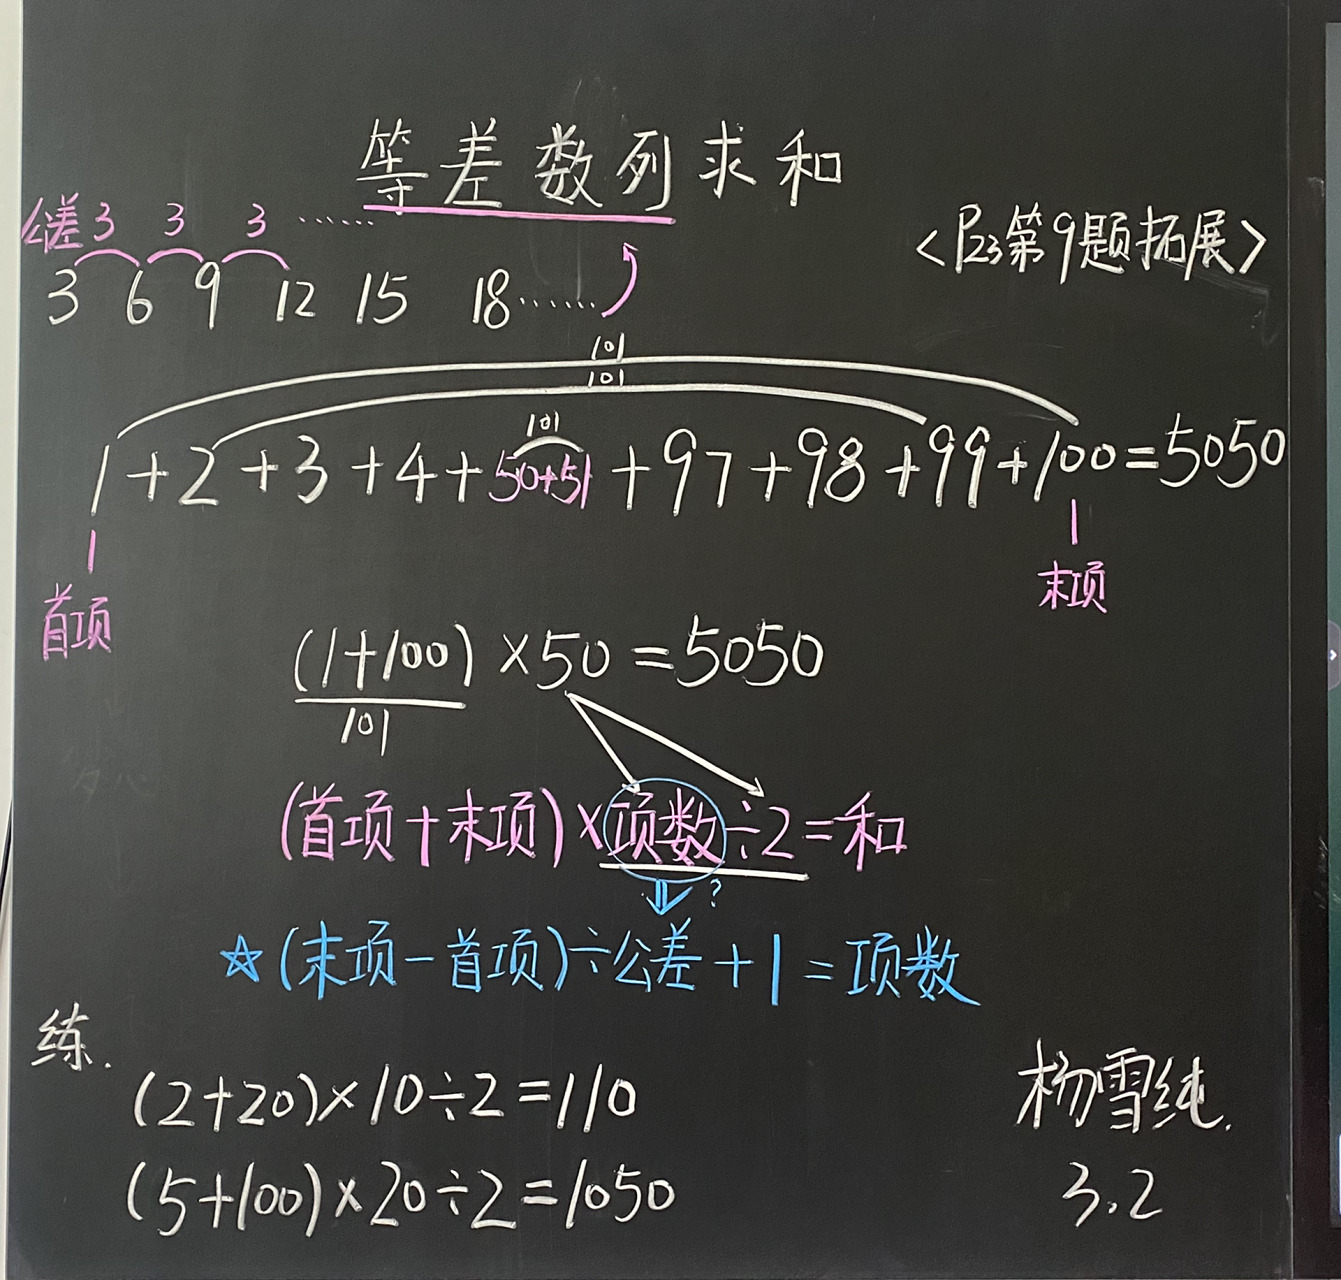 等差数列求和
<P23第9题拓展>
公差 3 3 3 ……
3 6 9 12 15 18 ……
101
101
101
1+2+3+4+50+51+97+98+99+100=5050
首项 末项
(1+100)×50=5050
101
(首项+末项)×项数÷2=和
?
☆(末项-首项)÷公差+1=项数
练.
(2+20)×10÷2=110
(5+100)×20÷2=1050
杨雪纯.
3.2